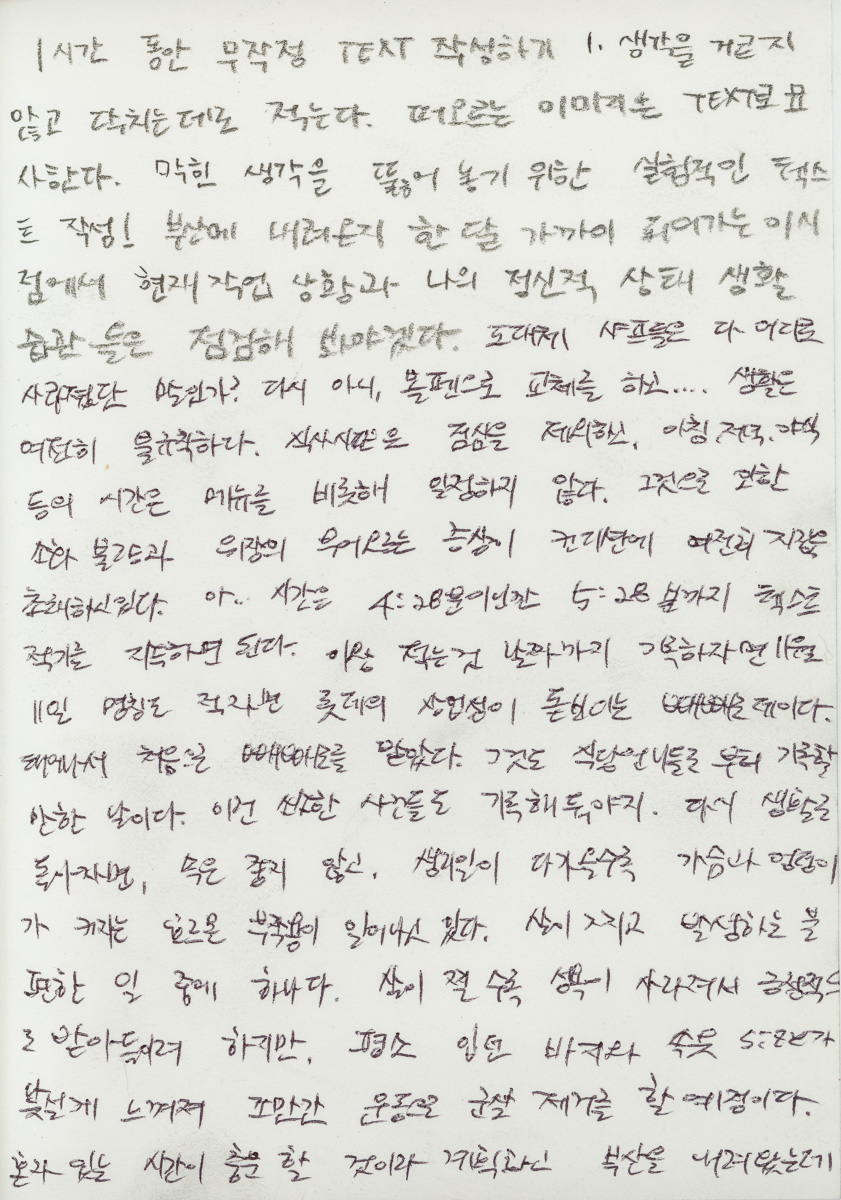 1시간 동안 무작정 TEXT 작성하기 1. 생각을 거르지
않고 닥치는데로 적는다. 떠오르는 이미지는 TEXT로 묘
사한다. 막힌 생각을 뚫어 놓기 위한 실험적인 텍스
트 작성! 부산에 내려온지 한 달 가까이 되어가는 이 시
점에서 현재 작업 상황과 나의 정신적 상태 생활
습관들은 점검해 봐야겠다. 도대체 샤프들은 다 어디로
사라졌단 말인가? 다시 아니, 볼펜으로 교체를 하고.... 생활은
여전히 불규칙하다. 식사시간은 점심을 제외하고, 아침.저녁.야식
등의 시간은 메뉴를 비롯해 일정하지 않다. 그것으로 또한
소화 불량과 위장의 부어오르는 증상이 컨디션에 여전히 지장을
초래하고있다. 아.. 시간은 4:28분이니깐 5:28분까지 텍스트
적기를 지속하면 된다. 이왕 적는것 날짜까지 기록하자면 11월
11일 명칭도 적자면 롯데의 상업성이 돋보이는 빼빼로데이다.
태어나서 처음으로 빼빼로를 안받았다. 그것도 식당언니들로 부터 기록할
만한 날이다. 이런 소소한 사건들도 기록해둬야지. 다시 생활로
돌아가자면, 속은 좋지 않고, 생리일이 다가올수록 가슴과 엉덩이
가 커지는 호르몬 부작용이 일어나고 있다. 살이 찌고 발생하는 불
편한 일 중에 하나다. 살이 찔 수록 성욕이 사라져서 긍정적으
로 받아들이려 하지만, 평소 입던 바지와 속옷 SIZE가
낯설게 느껴져 조만간 운동으로 군살 제거를 할 예정이다.
혼자 있는 시간이 충분 할 것이라 계획하고 부산을 내려왔는데